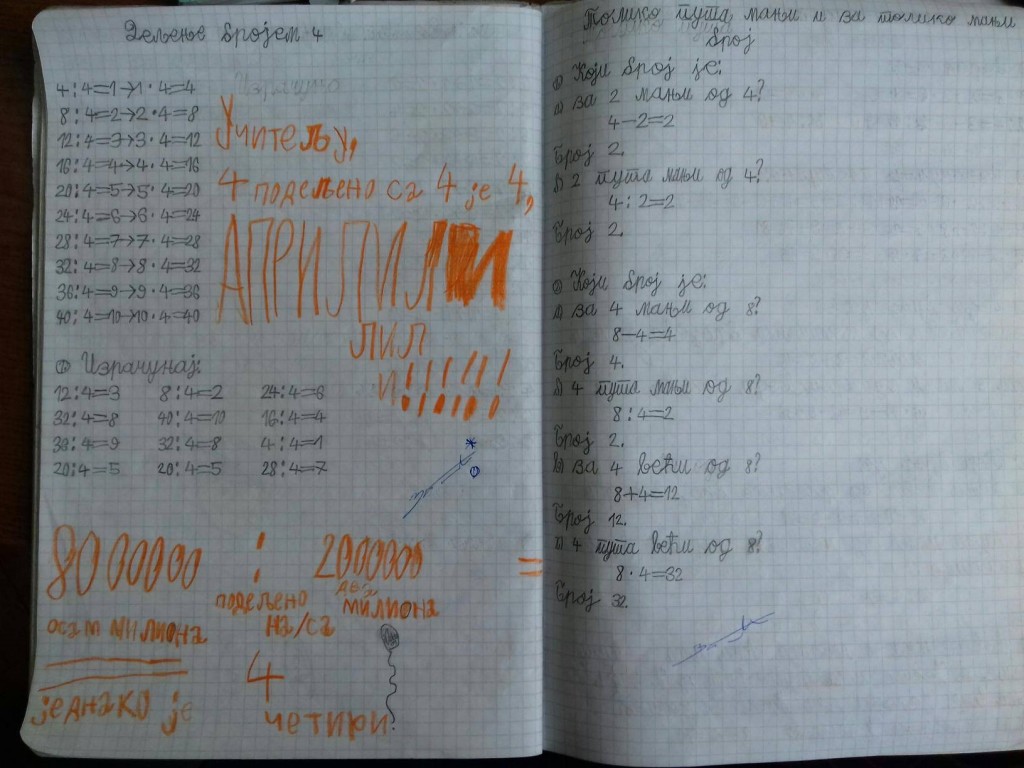 Дељење бројем 4
4:4=1→1·4=4
8:4=2→2·4=8
12:4=3→3·4=12
16:4=4→4·4=16
20:4=5→5·4=20
24:4=6→6·4=24
28:4=7→7·4=28
32:4=8→8·4=32
36:4=9→9·4=36
40:4=10→10·4=40
Учитељу,
4 подељено са 4 је 4,
АПРИЛИЛИ
ЛИЛ
И!!!!!!
① Израчунај:
12:4=3 8:4=2 24:4=6
32:4=8 40:4=10 16:4=4
36:4=9 32:4=8 4:4=1
20:4=5 20:4=5 28:4=7
8000000 : 2000000 =
осам милиона
подељено
на/са
два
милиона
једнако је
4
четири
Толико пута мањи и за толико мањи
број
① Који број је:
а) за 2 мањи од 4?
4-2=2
Број 2.
б) 2 пута мањи од 4?
4:2=2
Број 2.
② Који број је:
а) за 4 мањи од 8?
8-4=4
Број 4.
б) 4 пута мањи од 8?
8:4=2
Број 2.
в) за 4 већи од 8?
8+4=12
Број 12.
г) 4 пута већи од 8?
8·4=32
Број 32.